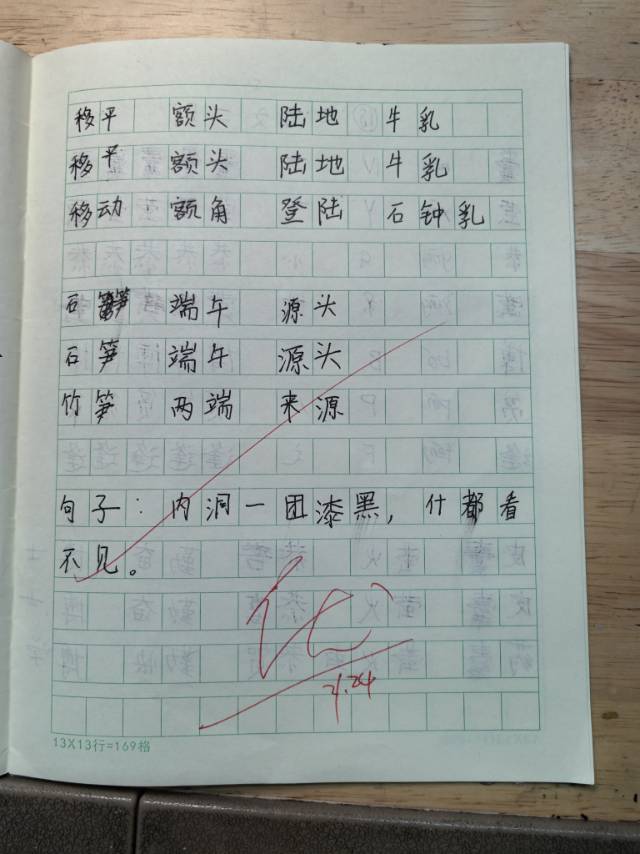 移平 额头 陆地 牛乳
移平 额头 陆地 牛乳
移动 额角 登陆 石钟乳
石笋 端午 源头
石笋 端午 源头
竹笋 两端 来源
句子：内洞一团漆黑，什都看
不见。
4.24
13X13行=169格